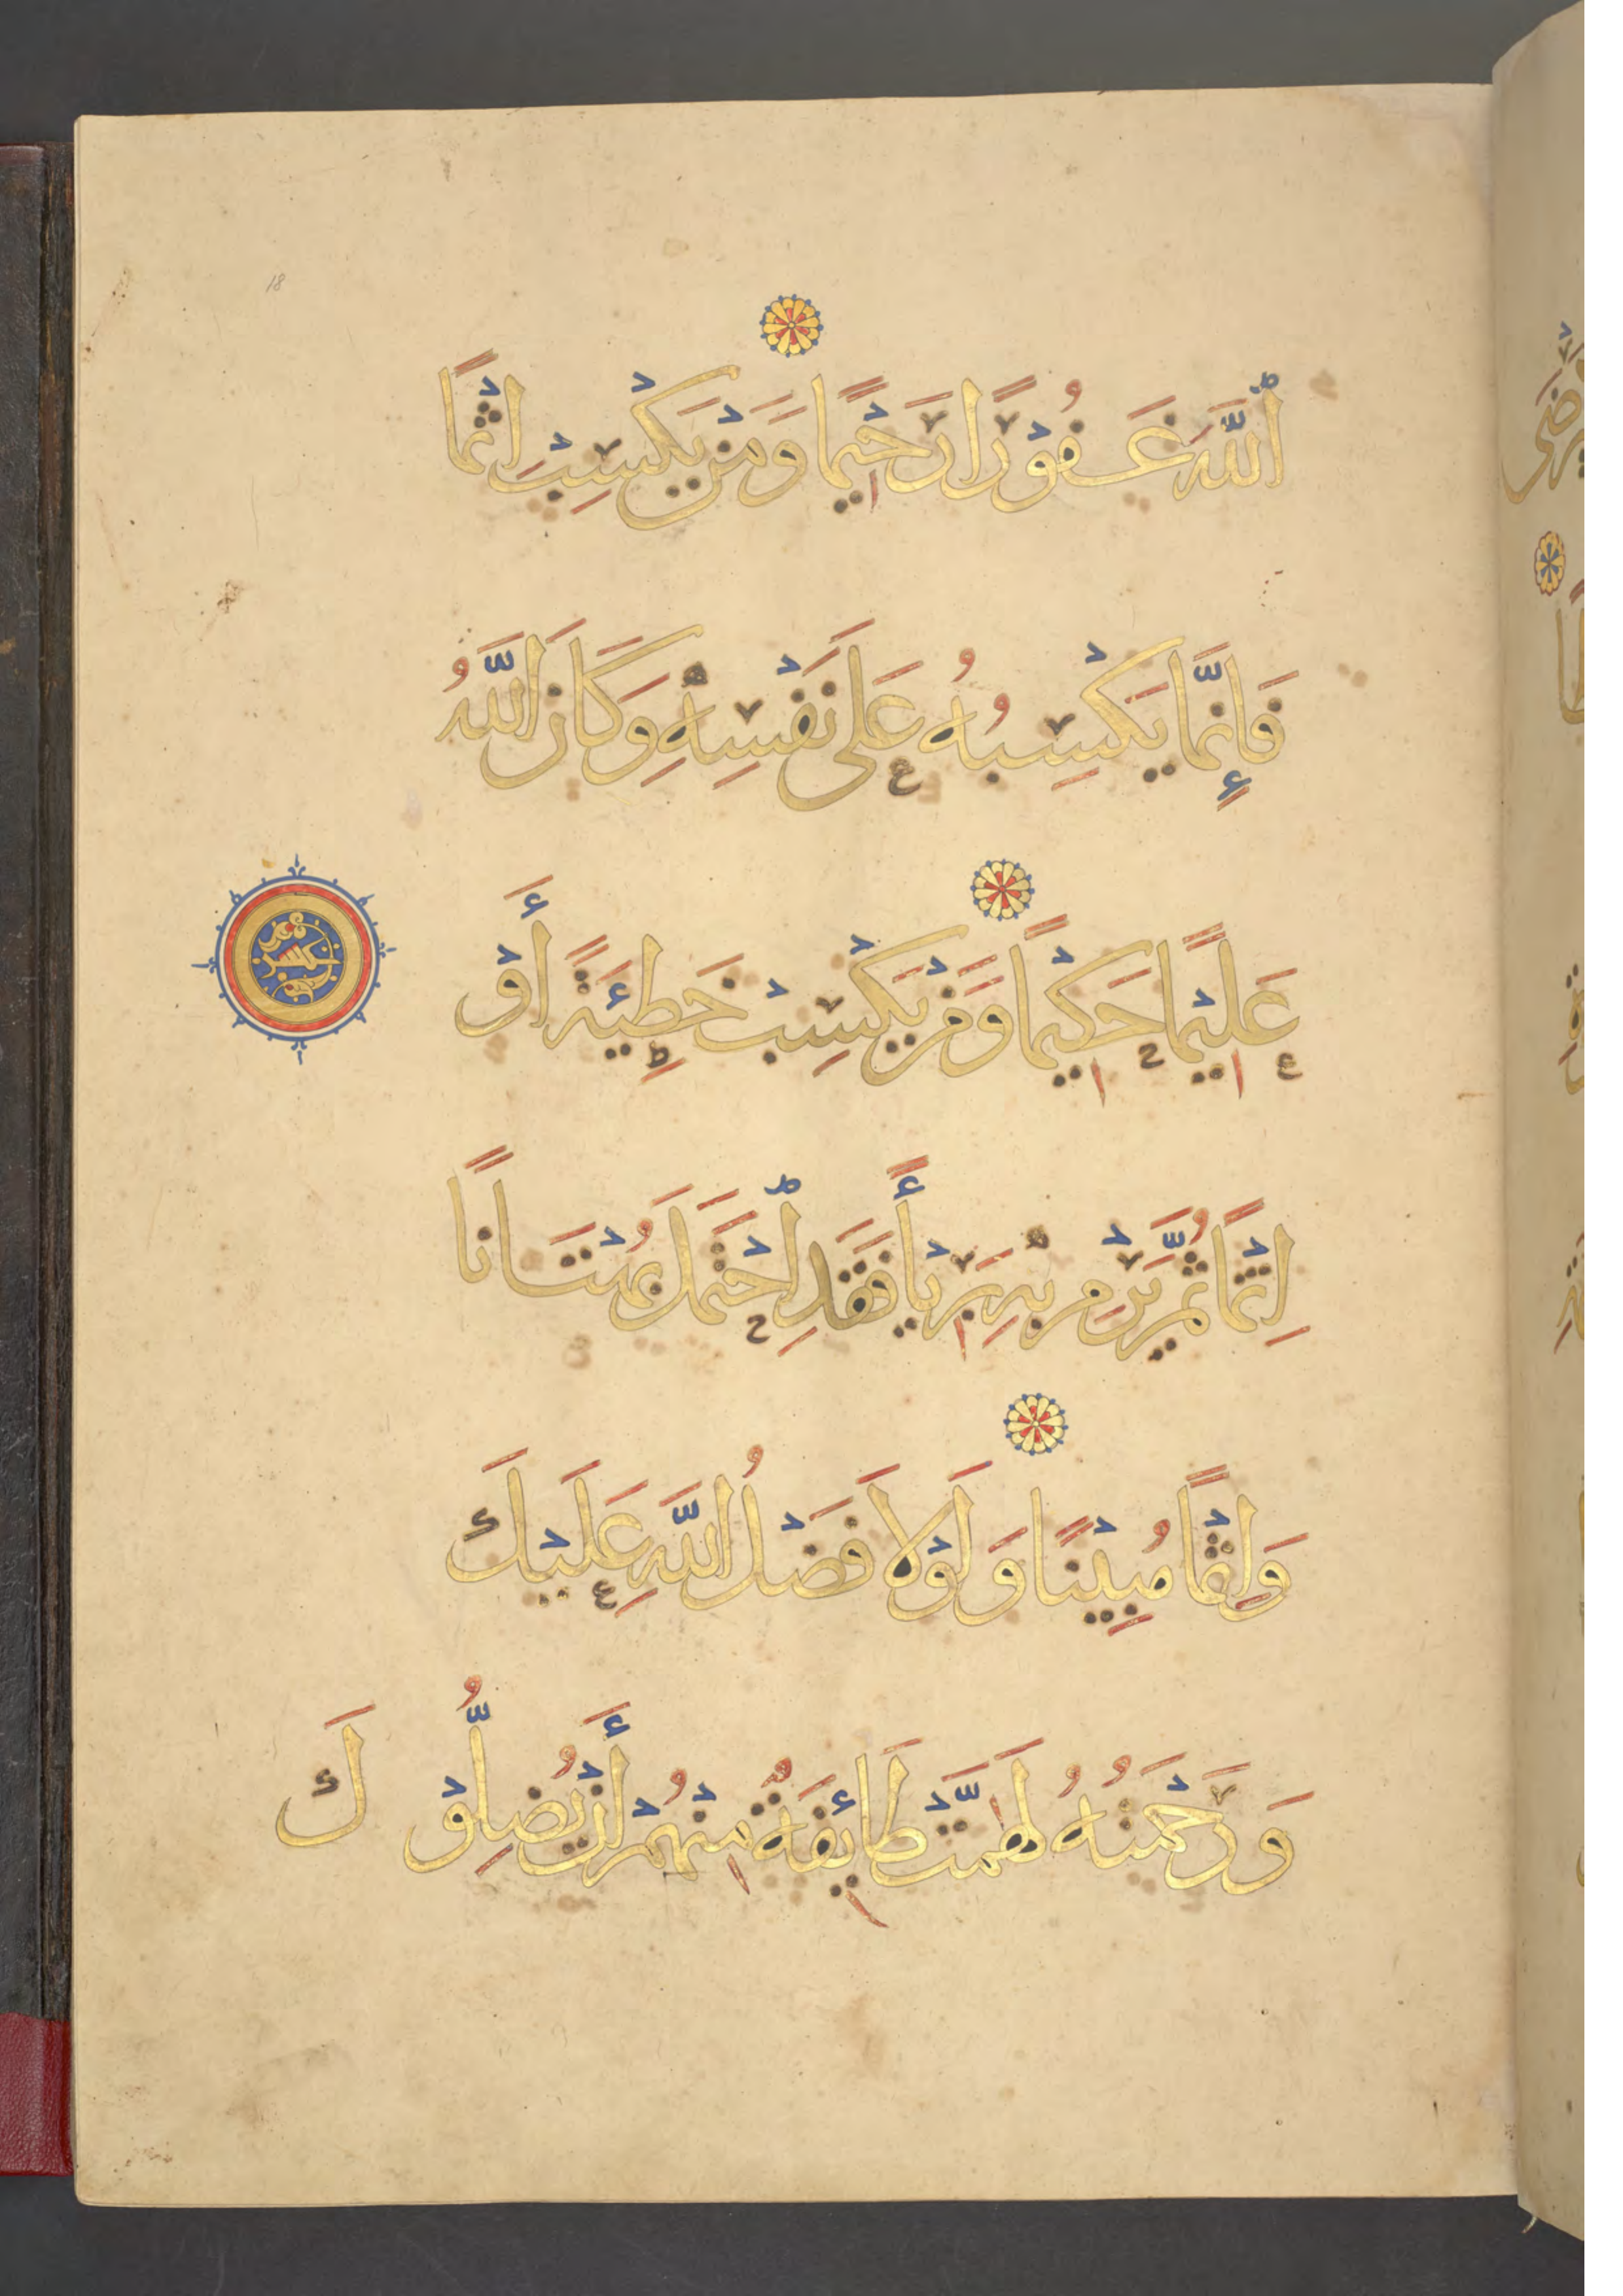 18
ٱللَّهَ غَفُوْرًا رَحِيْمًا وَمَنْ يَكْسِبْ اثْمًا
فَإِنَّمَا يَكْسِبُهُ عَلَى نَفْسِهِ وَكَانَ اللَّهُ
عَلِيْمًا حَكِيْمًا وَمَنْ يَكْسِبْ خَطِيئَةً أَوْ
اِثْمًا ثُمَّ يَرْمِ بِهِ بَرِيْأً فَقَدِ ٱحْتَمَلَ بُهْتَانًا
وَاِثْمًا مُبِيْنًا وَلَوْلَا فَضْلُ اللَّهِ عَلَيْكَ
وَرَحْمَتُهُ لَهَمَّتْ طَائِفَةٌ مِنْهُمْ أَنْ يُضِلُّوْكَ